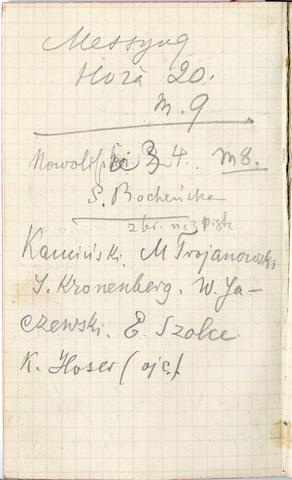 Messyng
Hoża 20.
m. 9
Nowolipki 24. m 8.
S. Bocheńska
zbr. na
Kamiński. M Trojanowski,
J. Kronenberg. W. Ja-
czewski. E. Szolce
K. Hoser (ojc.)